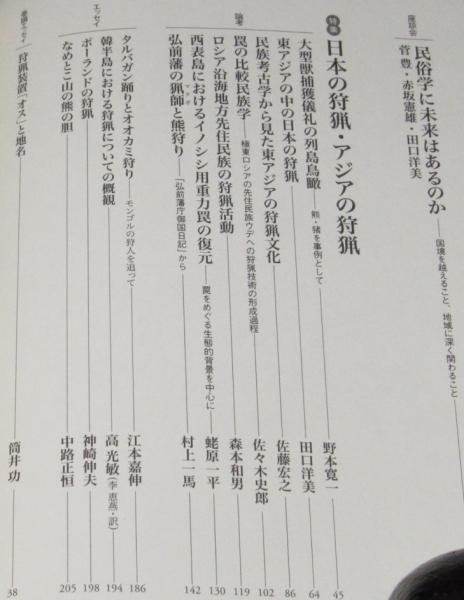 座談会
民俗学に未来はあるのか――国境を越えること、地域に深く関わること
菅 豊・赤坂憲雄・田口洋美
特集 日本の狩猟・アジアの狩猟
大型獣捕獲儀礼の列島鳥瞰――熊・猪を事例として 野本寛一 45
東アジアの中の日本の狩猟 田口洋美 64
民族考古学から見た東アジアの狩猟文化 佐藤宏之 86
論考
罠の比較民族学――極東ロシアの先住民族ウデヘの狩猟技術の形成過程 佐々木史郎 102
ロシア沿海地方先住民族の狩猟活動 森本和男 119
西表島におけるイノシシ用重力罠の復元――罠をめぐる生態的背景を中心に 蛯原一平 130
弘前藩の猟師と熊狩り――「弘前藩庁御国日記」から 村上一馬 142
エッセイ
タルバガン踊りとオオカミ狩り――モンゴルの狩人を追って 江本嘉伸 186
韓半島における狩猟についての概観 高 光敏(李 恵燕・訳) 194
ポーランドの狩猟 神崎伸夫 198
なめとこ山の熊の胆 中路正恒 205
狩猟装置「オス」と地名 筒井 功 38